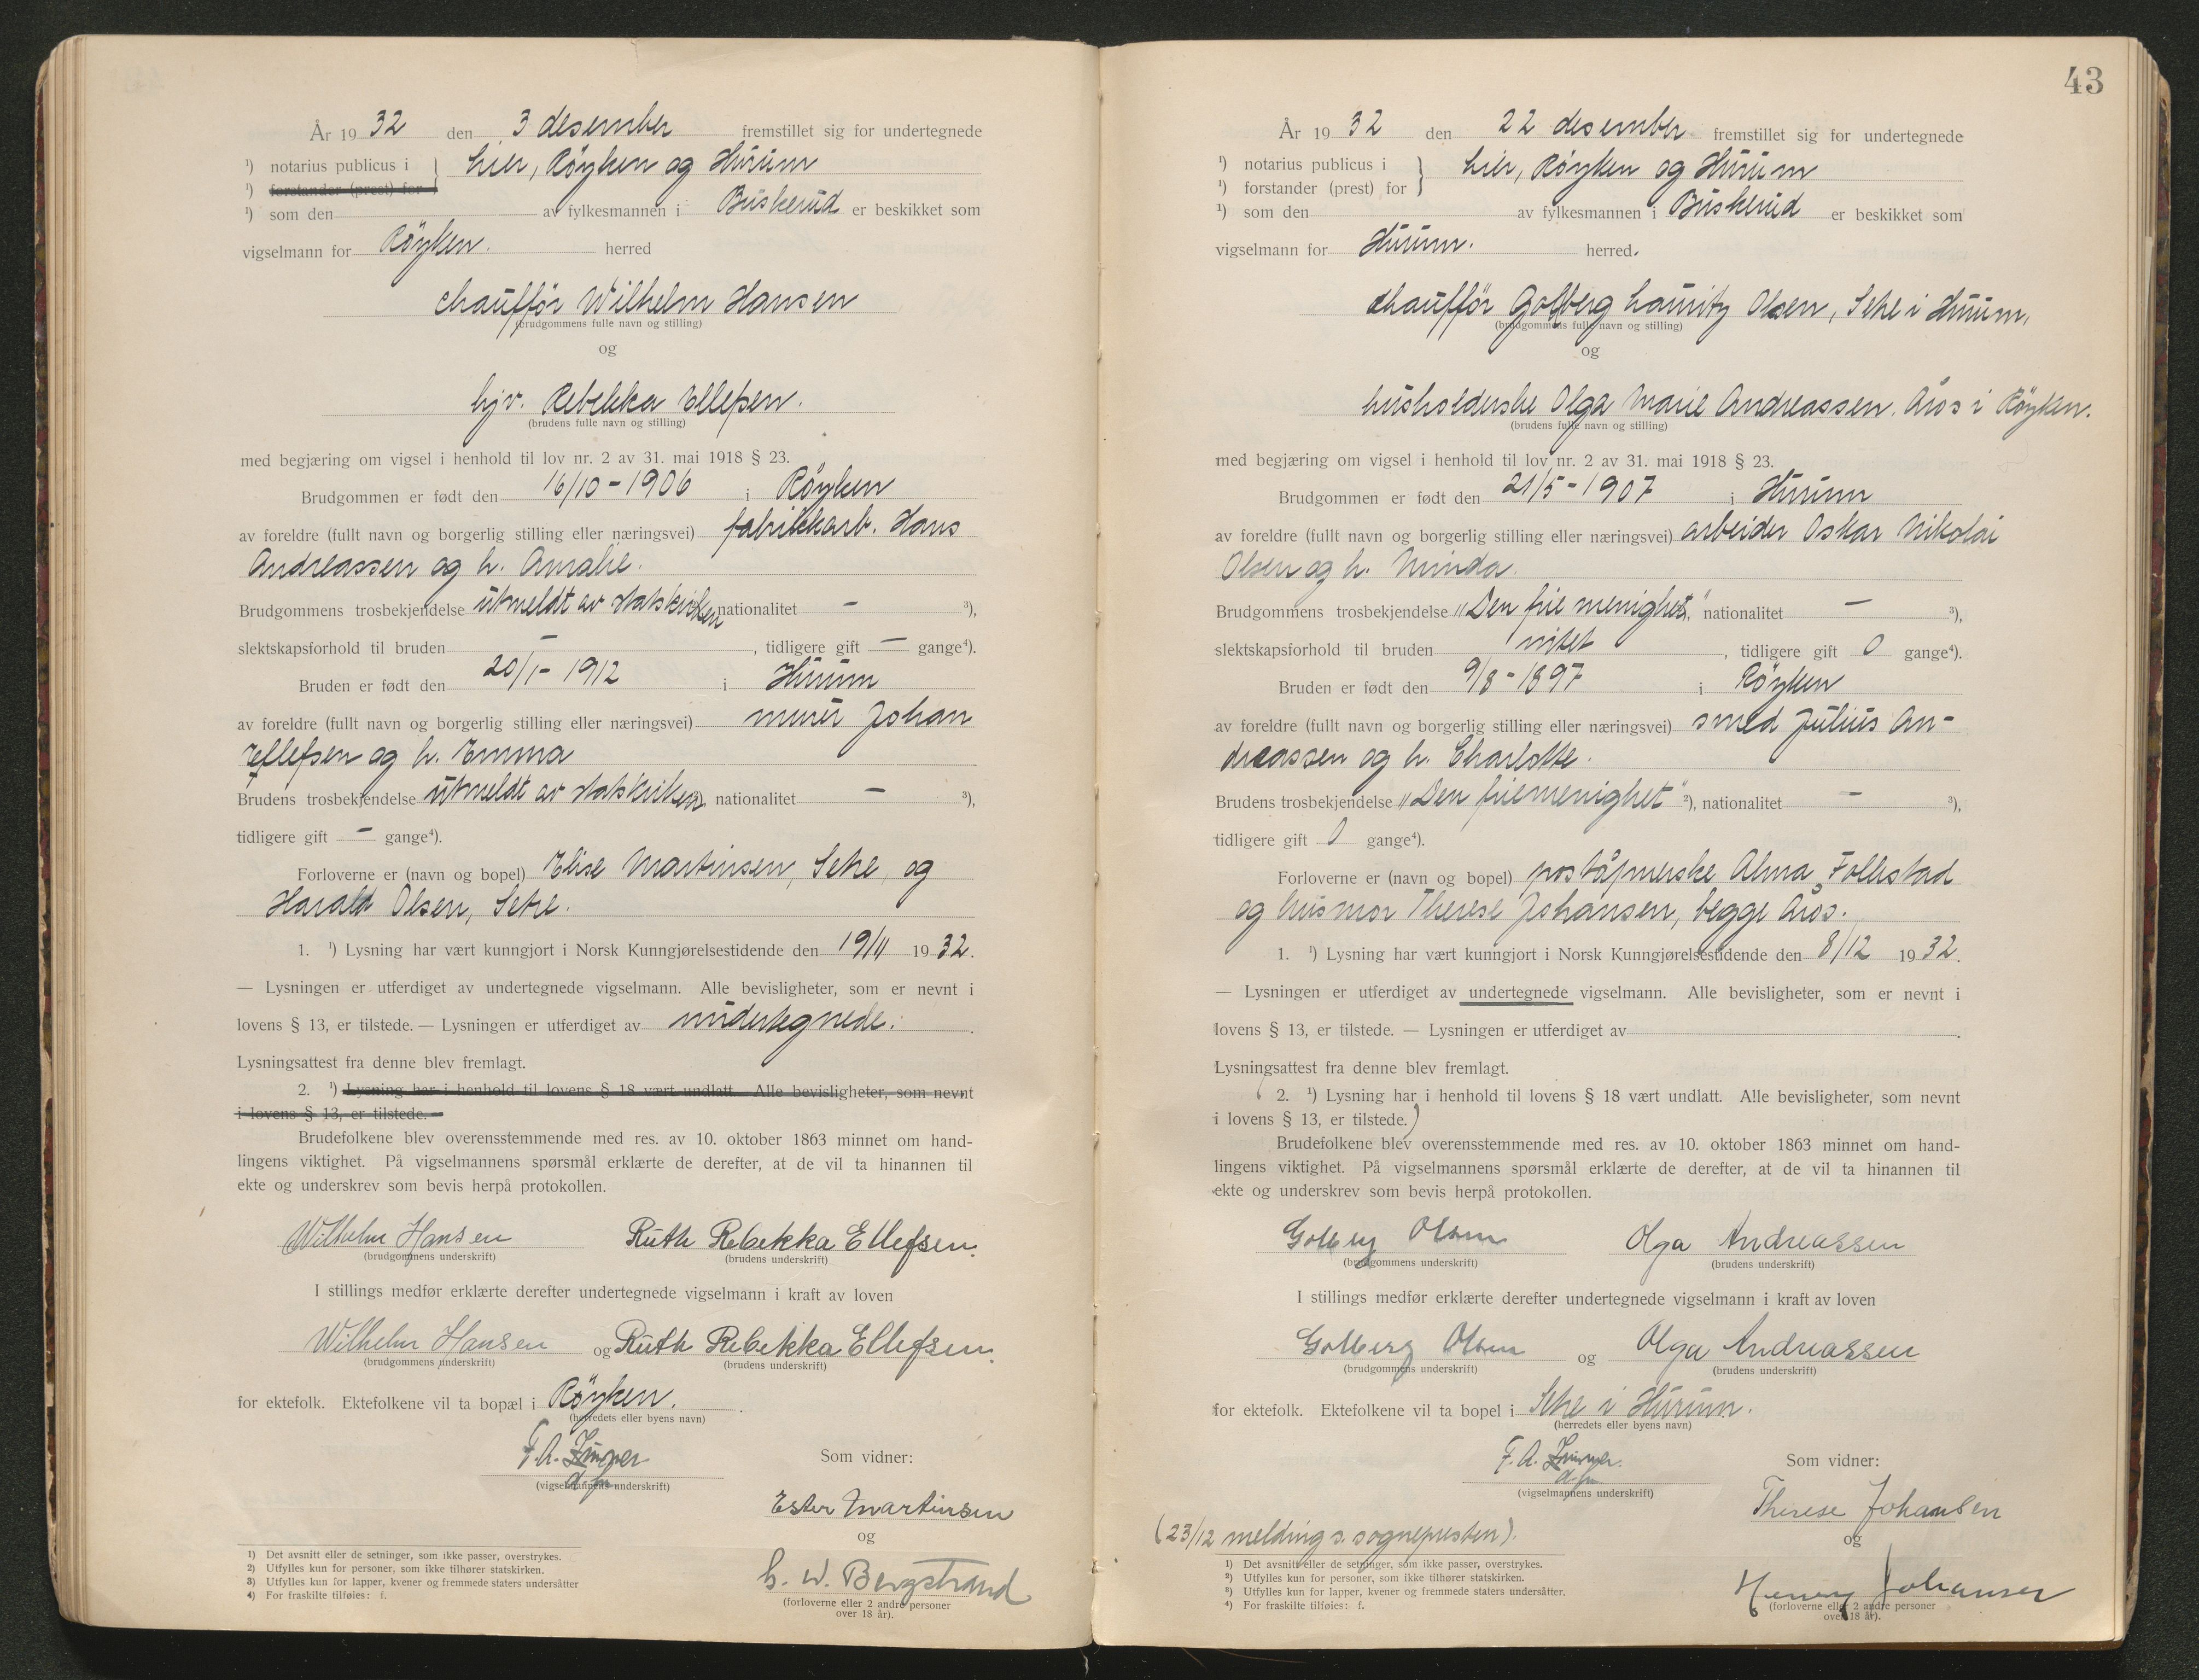 År 1932 den 3 desember fremstillet sig for undertegnede
¹) notarius publicus i } Lier, Röyken og Hurum
¹) forstander (prest) for
¹) som den av fylkesmannen i Buskerud er beskikket som
vigselmann for Röyken. herred
chaufför Wilhelm Hansen
(brudgommens fulle navn og stilling)
og
hjv. Rebekka Ellefsen.
(brudens fulle navn og stilling)
med begjæring om vigsel i henhold til lov nr. 2 av 31. mai 1918 § 23.
Brudgommen er født den 16/10-1906 i Röyken
av foreldre (fullt navn og borgerlig stilling eller næringsvei) fabrikkarb. Hans
Andreassen og h. Amalie.
Brudgommens trosbekjendelse utmeldt av statskirken nationalitet - ³),
slektskapsforhold til bruden - , tidligere gift - gange⁴).
Bruden er født den 20/1-1912 i Hurum
av foreldre (fullt navn og borgerlig stilling eller næringsvei) murer Johan
Ellefsen og h. Emma
Brudens trosbekjendelse utmeldt av statskirken, nationalitet - ³),
tidligere gift - gange⁴).
Forloverne er (navn og bopel) Elise Martinsen, Setre, og
Harald Olsen, Setre.
1. ¹) Lysning har vært kunngjort i Norsk Kunngjørelsestidende den 19/11 1932.
— Lysningen er utferdiget av undertegnede vigselmann. Alle bevisligheter, som er nevnt i
lovens § 13, er tilstede. — Lysningen er utferdiget av undertegnede.
Lysningsattest fra denne blev fremlagt.
2. ¹) Lysning har i henhold til lovens § 18 vært undlatt. Alle bevisligheter, som nevnt
i lovens § 13, er tilstede.
Brudefolkene blev overensstemmende med res. av 10. oktober 1863 minnet om hand-
lingens viktighet. På vigselmannens spørsmål erklærte de derefter, at de vil ta hinannen til
ekte og underskrev som bevis herpå protokollen.
Wilhelm Hansen Ruth Rebekka Ellefsen.
(brudgommens underskrift) (brudens underskrift)
I stillings medfør erklærte derefter undertegnede vigselmann i kraft av loven
Wilhelm Hansen og Ruth Rebekka Ellefsen.
(brudgommens underskrift) (brudens underskrift)
for ektefolk. Ektefolkene vil ta bopæl i Röyken.
(herredets eller byens navn)
F.A.
(vigselmannens underskrift)
Som vidner:
Ester Martinsen
og
W. Bergstrand
(forloverne eller 2 andre personer
over 18 år).
1) Det avsnitt eller de setninger, som ikke passer, overstrykes.
2) Utfylles kun for personer, som ikke tilhører statskirken.
3) Utfylles kun for lapper, kvener og fremmede staters undersåtter
4) For fraskilte tilføies: f.
43
År 1932 den 22 desember fremstillet sig for undertegnede
¹) notarius publicus i } Lier, Röyken og Hurum
¹) forstander (prest) for
¹) som den av fylkesmannen i Buskerud er beskikket som
vigselmann for Hurum. herred.
chaufför Golberg Lauritz Olsen, Setre i Hurum,
(brudgommens fulle navn og stilling)
og
husholderske Olga Marie Andreassen, Åros i Röyken.
(brudens fulle navn og stilling)
med begjæring om vigsel i henhold til lov nr. 2 av 31. mai 1918 § 23.
Brudgommen er født den 21/5-1907 i Hurum
av foreldre (fullt navn og borgerlig stilling eller næringsvei) arbeider Oskar Nikolai
Olsen og h. Minda.
Brudgommens trosbekjendelse "Den frie menighet", nationalitet - ³),
slektskapsforhold til bruden intet , tidligere gift 0 gange⁴).
Bruden er født den 9/8-1897 i Röyken
av foreldre (fullt navn og borgerlig stilling eller næringsvei) smed Julius An-
dreassen og h. Charlotte.
Brudens trosbekjendelse "Den friemenighet" ²), nationalitet - ³),
tidligere gift 0 gange⁴).
Forloverne er (navn og bopel) poståpnerske Alma Follestad
og husmor Therese Johansen, begge Åros.
1. ¹) Lysning har vært kunngjort i Norsk Kunngjørelsestidende den 8/12 1932.
— Lysningen er utferdiget av undertegnede vigselmann. Alle bevisligheter, som er nevnt i
lovens § 13, er tilstede. — Lysningen er utferdiget av .
Lysningsattest fra denne blev fremlagt.
( 2. ¹) Lysning har i henhold til lovens § 18 vært undlatt. Alle bevisligheter, som nevnt
i lovens § 13, er tilstede.)
Brudefolkene blev overensstemmende med res. av 10. oktober 1863 minnet om hand-
lingens viktighet. På vigselmannens spørsmål erklærte de derefter, at de vil ta hinannen til
ekte og underskrev som bevis herpå protokollen.
Golberg Olsen Olga Andreassen
(brudgommens underskrift) (brudens underskrift)
I stillings medfør erklærte derefter undertegnede vigselmann i kraft av loven
Golberg Olsen og Olga Andreassen
(brudgommens underskrift) (brudens underskrift)
for ektefolk. Ektefolkene vil ta bopel i Setre i Hurum.
(herredets eller byens navn)
F.A.
(vigselmannens underskrift)
Som vidner:
Therese Johansen
og
Henry Johansen
(forloverne eller 2 andre personer
over 18 år).
(23/12 melding s. sognepresten).
1) Det avsnitt eller de setninger, som ikke passer, overstrykes.
2) Utfylles kun for personer, som ikke tilhører statskirken.
3) Utfylles kun for lapper, kvener og fremmede staters undersåtter.
4) For fraskilte tilføies: f.